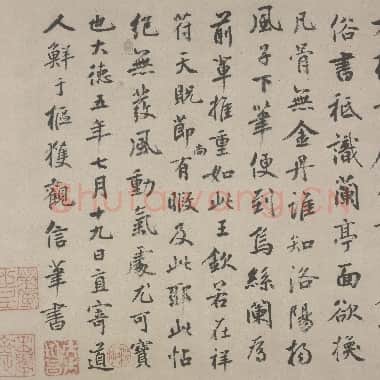 俗書秖識蘭亭面欲換
凡骨無金丹誰知洛陽楊
風子下筆便到烏絲闌為
前軰推重如此王欽若在祥
符天貺節尚有暇及此耶此帖
絕無發風動氣處尤可寶
也大德五年七月十九日直寄道
人鮮于樞獲觀信筆書
Shufawang.CN